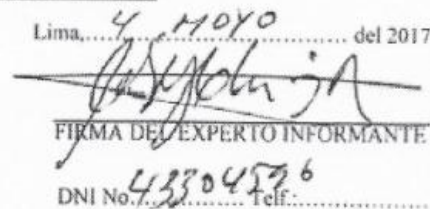 Lima, 4 MOYO del 2017
FIRMA DEL EXPERTO INFORMANTE
DNI No. Telf.: